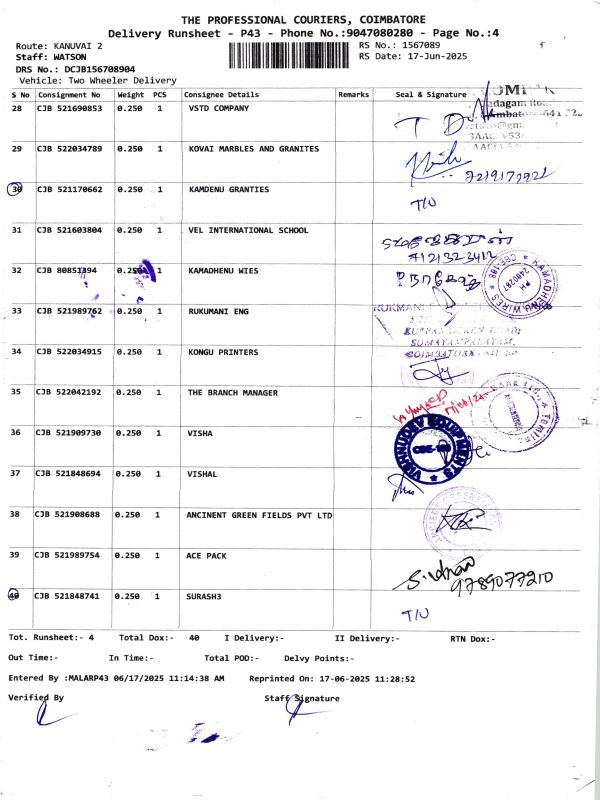 THE PROFESSIONAL COURIERS, COIMBATORE
Delivery Runsheet - P43 - Phone No.:9047080280 - Page No.:4
Route: KANUVAI 2 RS No.: 1567089
Staff: WATSON RS Date: 17-Jun-2025
DRS No.: DCJB156708904
Vehicle: Two Wheeler Delivery
S No Consignment No Weight PCS Consignee Details Remarks Seal & Signature
28 CJB 521690853 0.250 1 VSTD COMPANY
29 CJB 522034789 0.250 1 KOVAI MARBLES AND GRANITES
30 CJB 521170662 0.250 1 KAMDENU GRANTIES T/U
31 CJB 521603804 0.250 1 VEL INTERNATIONAL SCHOOL
32 CJB 80851394 0.250 1 KAMADHENU WIES
KAMADHENU WIRES
33 CJB 521989762 0.250 1 RUKUMANI ENG
SOMAYAMPALAYAM,
34 CJB 522034915 0.250 1 KONGU PRINTERS
35 CJB 522042192 0.250 1 THE BRANCH MANAGER
36 CJB 521909730 0.250 1 VISHA
VISHNUDEV EQUIPMENTS
37 CJB 521848694 0.250 1 VISHAL
38 CJB 521908688 0.250 1 ANCINENT GREEN FIELDS PVT LTD
39 CJB 521989754 0.250 1 ACE PACK
9789077210
40 CJB 521848741 0.250 1 SURASH3 T/U
Tot. Runsheet:- 4 Total Dox:- 40 I Delivery:- II Delivery:- RTN Dox:-
Out Time:- In Time:- Total POD:- Delvy Points:-
Entered By :MALARP43 06/17/2025 11:14:38 AM Reprinted On: 17-06-2025 11:28:52
Verified By Staff Signature